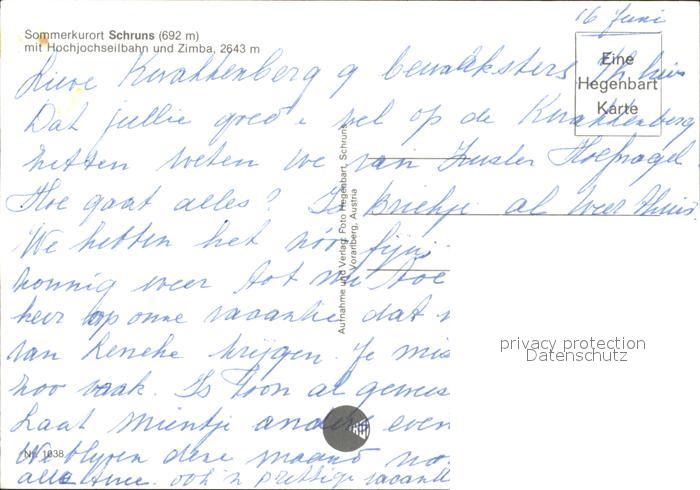 16 Juni
Sommerkurort Schruns (692 m)
mit Hochjochseilbahn und Zimba, 2643 m
Eine
Hegenbart
Karte
Lieve Kwakkenberg bewaaksters
Dat jullie goed wel op de Kwakkenberg
zitten weten we van Zuster Hoefnagel
Hoe gaat alles? Is al weer thuis
We hebben het fijn
zonnig weer tot nu toe
keer op onze vacantie dat
van krijgen. Je mis
zoo vaak. Is Toon al gewees
Laat Mientje anders even
We blijven deze maand
ook 'n prettige vacant
Aufnahme und Verlag: Foto Hegenbart, Schruns
Vorarlberg, Austria
privacy protection
Datenschutz
Nr. 1038